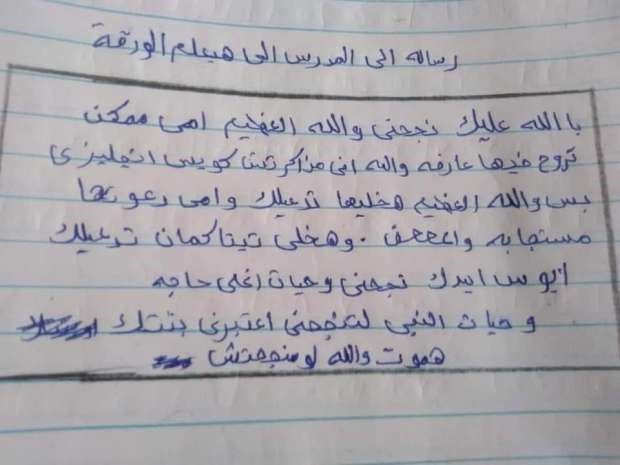 رساله الى المدرس الى هيعلم الورقة
باالله عليك نجحنى والله العظيم امى ممكن
تروح فيها عارفه والله انى مذاكرتش كويس انجليزى
بس والله العظيم هخليها تدعيلك وامى دعوتها
مستجابه واعععف . وهخلى تيتا كمان تدعيلك
ابوس ايدك نجحنى وحيات اغلى حاجه
وحيات النبى لتنجحنى اعتبرنى بنتك
هموت والله لو منجحتش